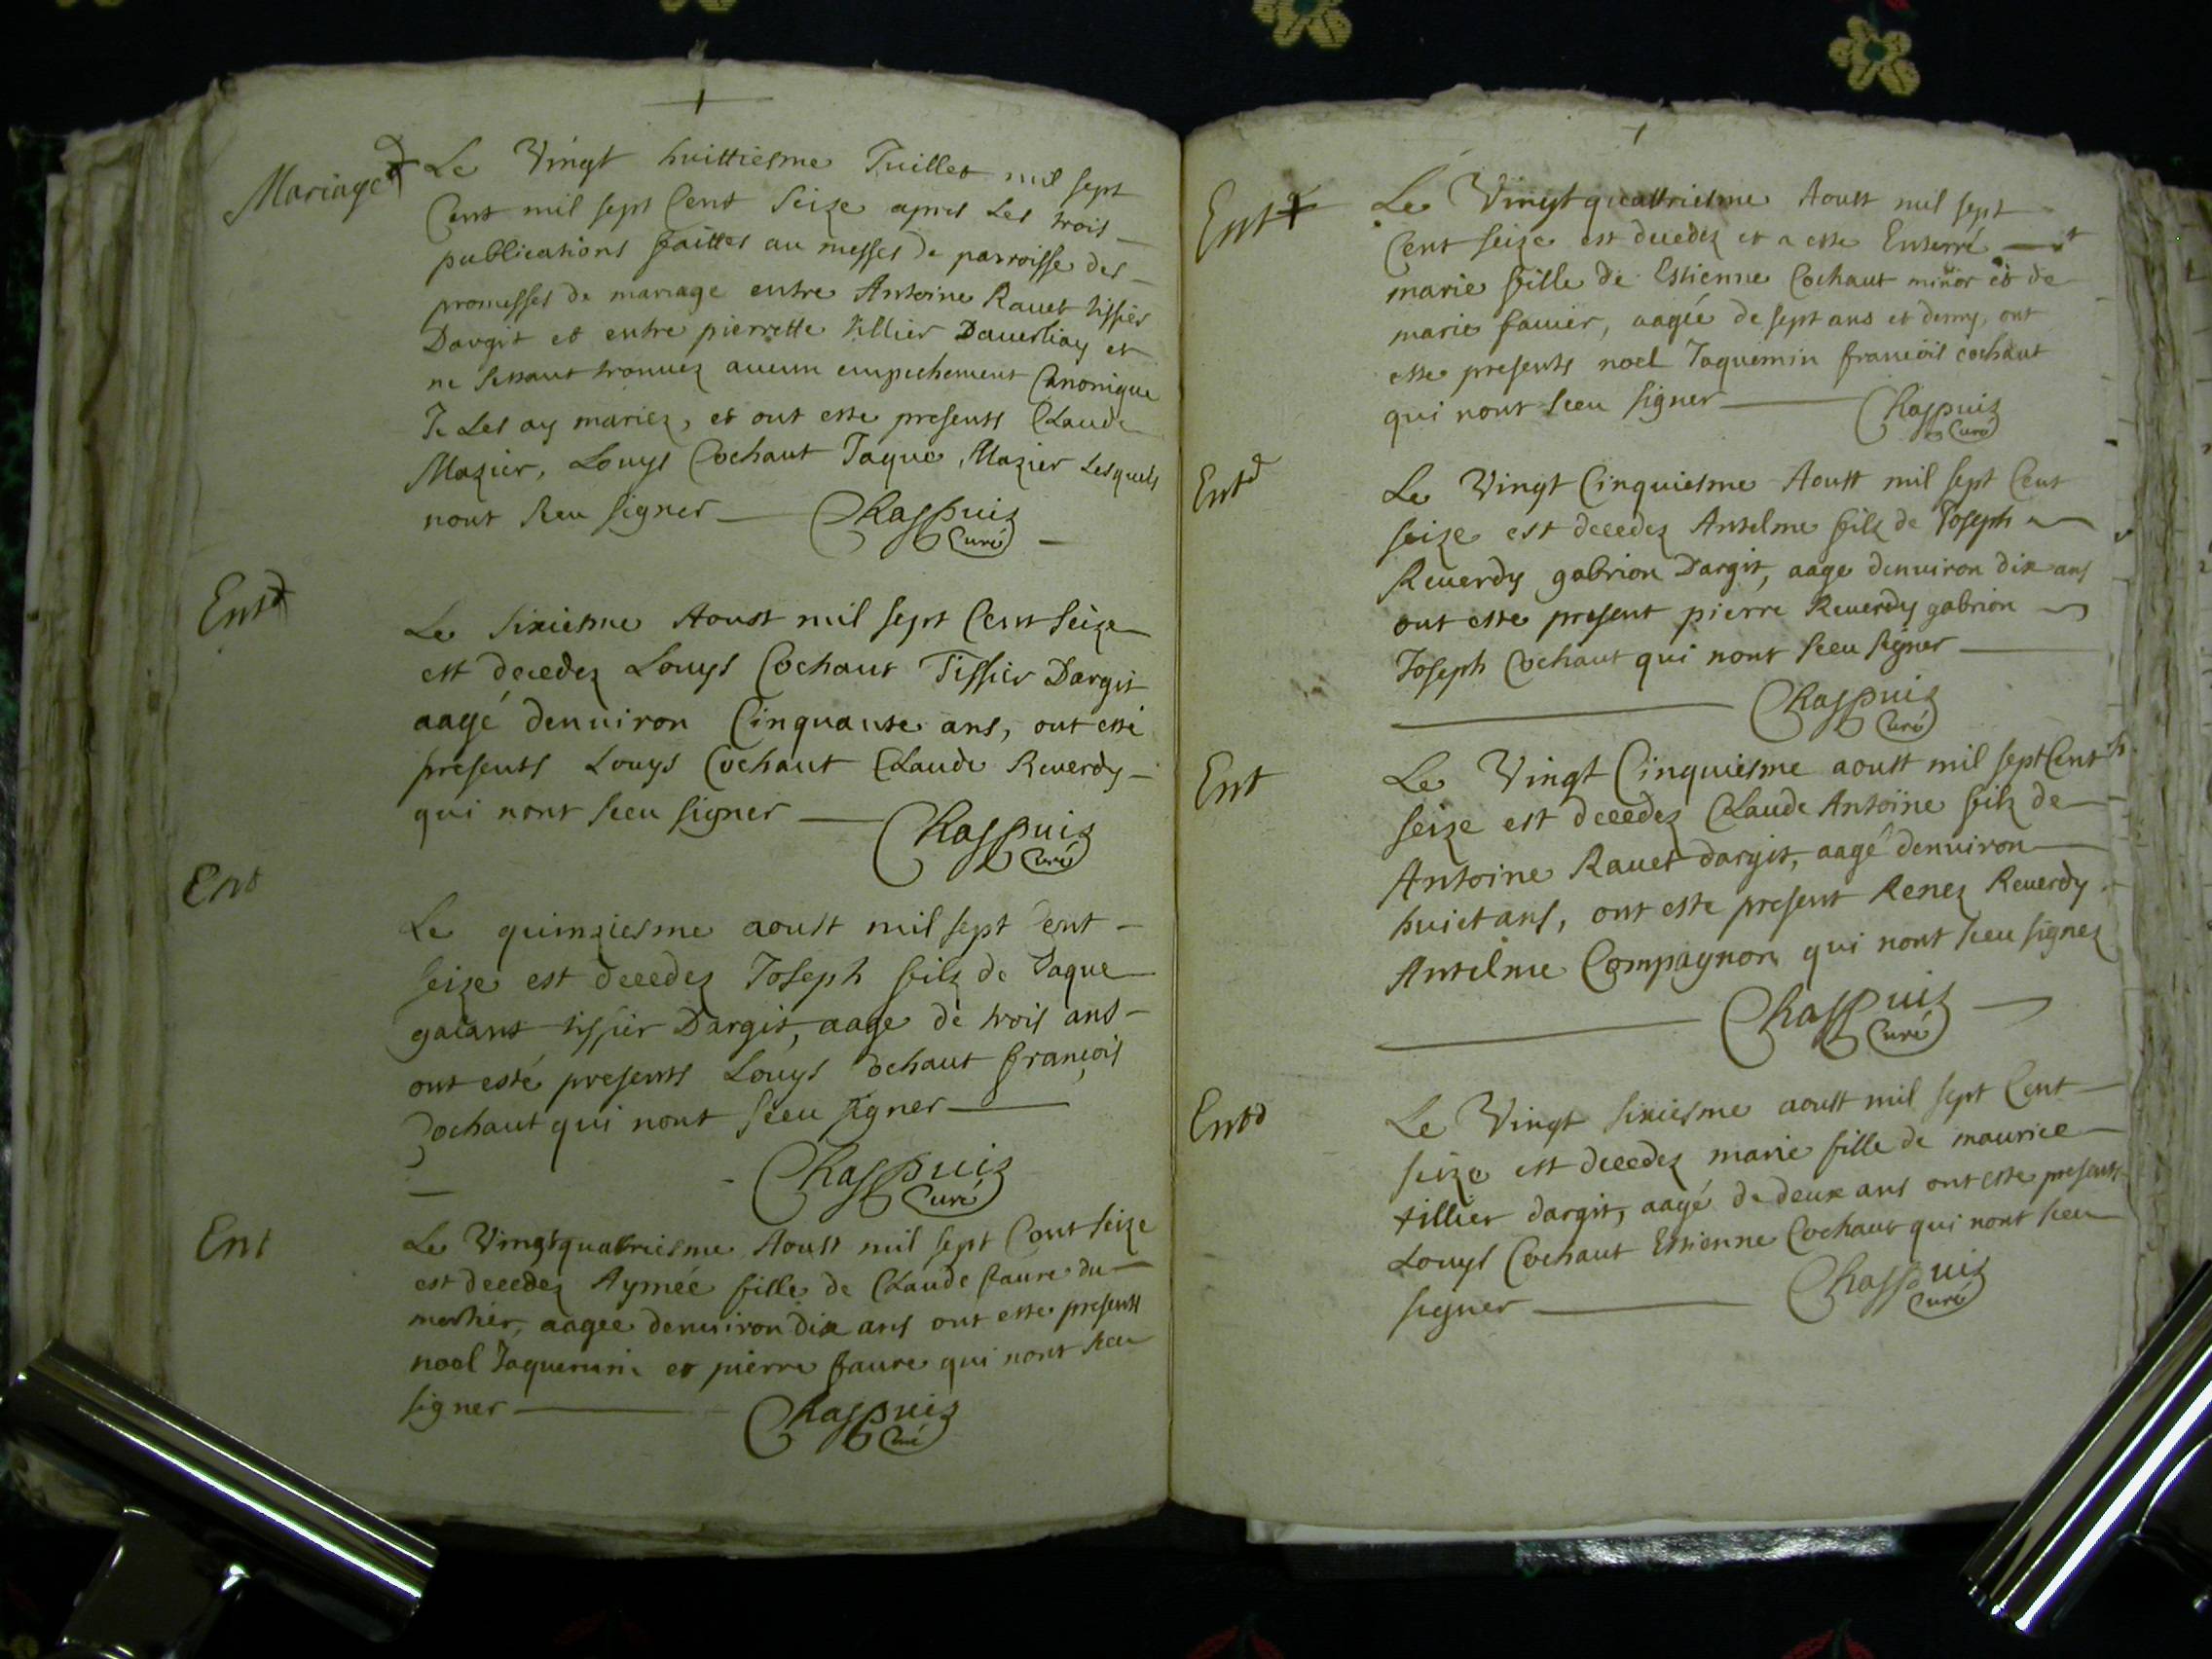 Mariage
Le Vingt huittiesme Juillet mil sept
Cent mil sept Cent Seize apres Les trois
publications faittes au messes de parroisse des
promesses de mariage entre Antoine Rauet tissier
Dargit et entre pierrette tillier et
ne sestant trouuez aucun empechement Canonique
Je Les ay mariez, et ont este presents Claude
Mazier, Louys Cochaut Jaque Mazier Lesquels
nont sceu signer Chaspuis
Curé
Ent
Le sixiesme Aoust mil sept Cent seize
est decedez Louys Cochaut Tissier Dargit
aagé denuiron Cinquante ans, ont esté
presents Louys Cochaut Claude Reuerdy
qui nont sceu signer Chaspuis
Curé
Ent
Le quinziesme aoust mil sept Cent
seize est decedez Joseph filz de Jaque
galant tissier Dargit, aage de trois ans
ont esté presents Louys Cochaut françois
Cochaut qui nont sceu signer
Chaspuis
Curé
Ent
Le Vingtquatriesme Aoust mil sept Cent seize
est decedez Aymée fille de Claude faure du
mortier, aagée denuiron dix ans ont este presents
noel Jaquemin et pierre faure qui nont sceu
signer Chaspuis
Curé
Ent
Le Vingtquattriesme Aoust mil sept
Cent seize est decedez et a este Enterré
marie fille de Estienne Cochaut minor et de
marie fauier, aagée de sept ans et demy, ont
este presents noel Jaquemin francois cochaut
qui nont sceu signer Chaspuis
Curé
Ent
Le Vingt Cinquiesme Aoust mil sept Cent
seize est decedez Anselme filz de Joseph
Reuerdy gabrion Dargit, aage denuiron dix ans
ont este present pierre Reuerdy gabrion
Joseph Cochaut qui nont sceu signer
Chaspuis
Curé
Ent
Le Vingt Cinquiesme aoust mil sept Cent
seize est decedez Claude Antoine filz de
Antoine Rauet dargit, aagé denuiron
huict ans, ont este present Renez Reuerdy
Antelme Compagnon qui nont sceu signez
Chaspuis
Curé
Ent
Le Vingt sixiesme aoust mil sept Cent
seize est decedez marie fille de maurice
tillier dargit, aagé de deux ans ont este presents
Louys Cochaut Estienne Cochaut qui nont sceu
signer Chaspuis
Curé